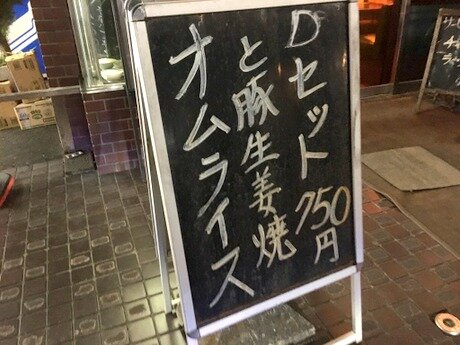 Dセット750円
と豚生姜焼
オムライス